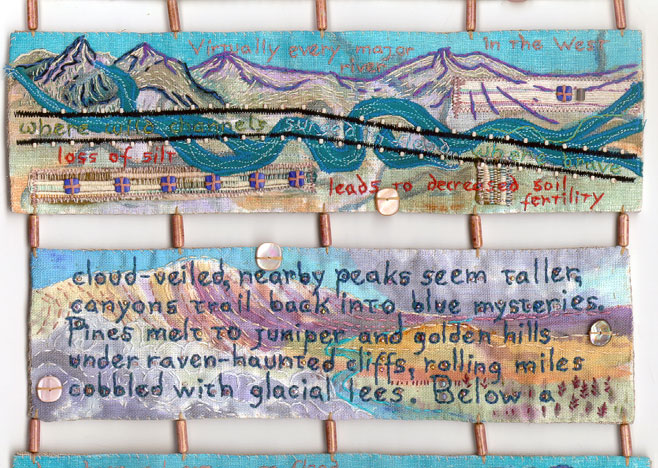 Virtually every major river in the West
where wild channels
loss of silt
leads to decreased soil
fertility
cloud-veiled, nearby peaks seem taller,
canyons trail back into blue mysteries.
Pines melt to juniper and golden hills
under raven-haunted cliffs, rolling miles
cobbled with glacial lees. Below a
flood